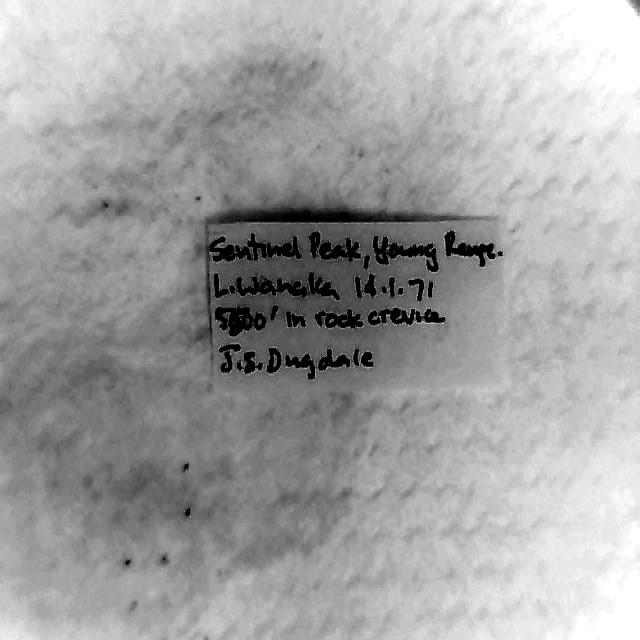 Sentinel Peak, Young Range.
L. Wanaka 14.1.71
5800' in rock crevice
J.S. Dugdale